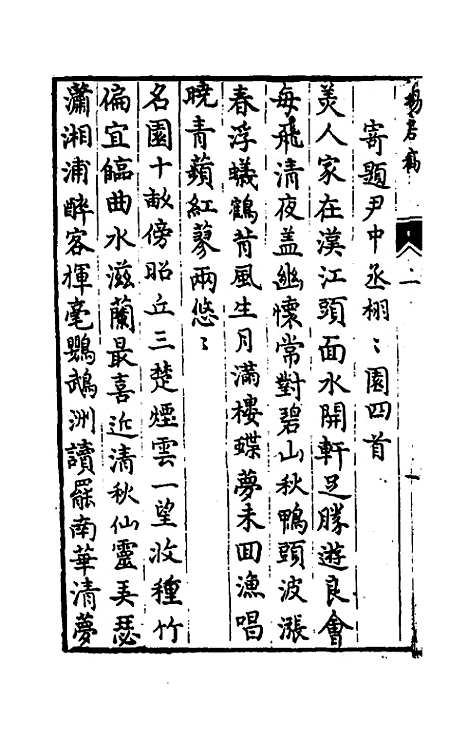 寄題尹中丞栩〻園四首
美人家在漢江頭面水開軒足勝遊良會
每飛清夜盖幽懷常對碧山秋鴨頭波漲
春浮蟻鶴背風生月滿樓蝶夢未回漁唱
曉青蘋紅蓼兩悠〻
名園十畝傍昭丘三楚煙雲一望收種竹
偏宜臨曲水滋蘭最喜近清秋仙靈弄瑟
瀟湘浦醉客揮毫鸚鵡洲讀罷南華清夢